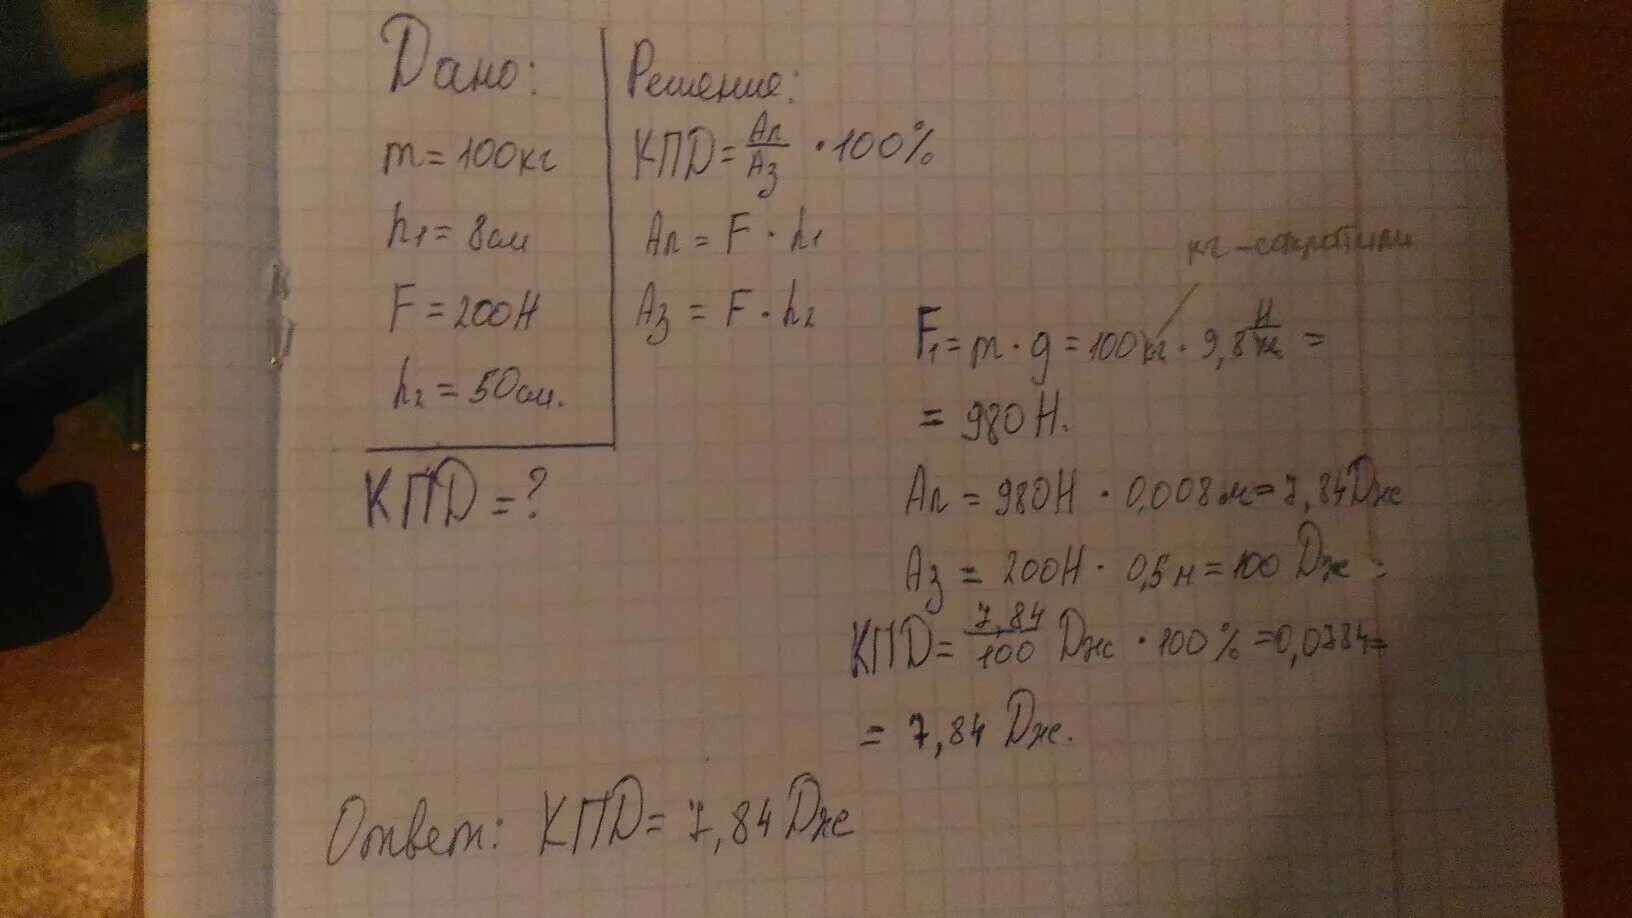 Дано:
m = 100кг
h1 = 8см
F = 200Н
h2 = 50см.
КПД = ?
Решение:
КПД = Ап/Аз · 100%
Ап = F · h1
Аз = F · h2
кг - сократили
F1 = m · g = 100кг · 9,8 Н/кг =
= 980Н.
Ап = 980Н · 0,008м = 7,84Дж
Аз = 200Н · 0,5м = 100 Дж
КПД = 7,84/100 Дж · 100% = 0,0784 =
= 7,84 Дж.
Ответ: КПД = 7,84Дж